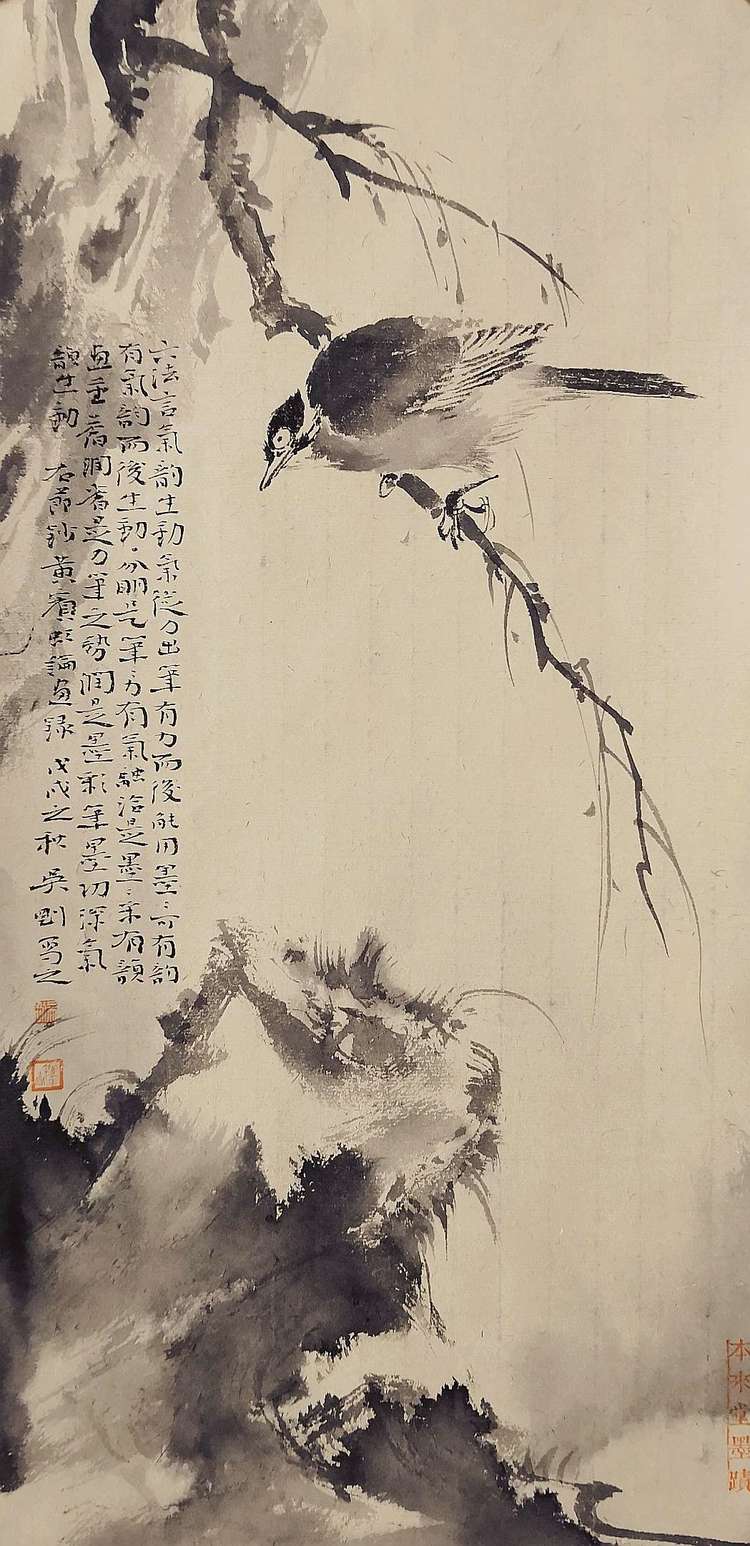 六法言氣韵生動氣從力出筆有力而後能用墨〻可有韵
有氣韵而後生動分明是筆〻力有氣融洽是墨〻采有韻
畫重蒼潤蒼是力筆之勢潤是墨彩筆墨功深氣
韻生動 右節鈔黃賓虹論畫錄 戊戌之秋 吳剛寫之
本來堂墨蹟